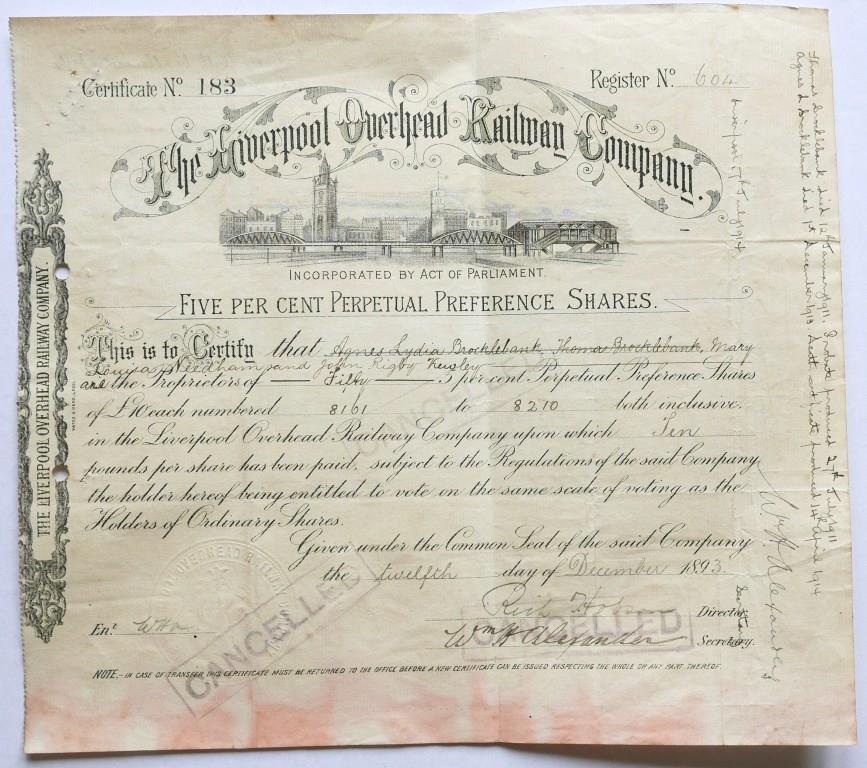 Certificate No 183
Register No 604
The Liverpool Overhead Railway Company.
INCORPORATED BY ACT OF PARLIAMENT.
FIVE PER CENT PERPETUAL PREFERENCE SHARES.
This is to Certify that Agnes Lydia Brocklebank, Thomas Brocklebank, Mary
Louisa Needham, and John Rigby
are the Proprietors of Fifty 5 per cent Perpetual Preference Shares
of £10 each numbered 8161 to 8210 both inclusive.
in the Liverpool Overhead Railway Company upon which Ten
pounds per share has been paid, subject to the Regulations of the said Company
the holder hereof being entitled to vote on the same scale of voting as the
Holders of Ordinary Shares.
Given under the Common Seal of the said Company
the twelfth day of December 1893.
Rich Hobson Director
Ent
Wm H Alexander Secretary.
CANCELLED
CANCELLED
CANCELLED
NOTE.- IN CASE OF TRANSFER THIS CERTIFICATE MUST BE RETURNED TO THE OFFICE BEFORE A NEW CERTIFICATE CAN BE ISSUED RESPECTING THE WHOLE OR ANY PART THEREOF.
THE LIVERPOOL OVERHEAD RAILWAY COMPANY.
OVERHEAD RAILWAY
Thomas Brocklebank died 12th January 1911. Probate produced 27th July 1911
Agnes L Brocklebank died 1st December 1913. Death certificate produced 14th April 1914
Wm H. Alexander
Secretary